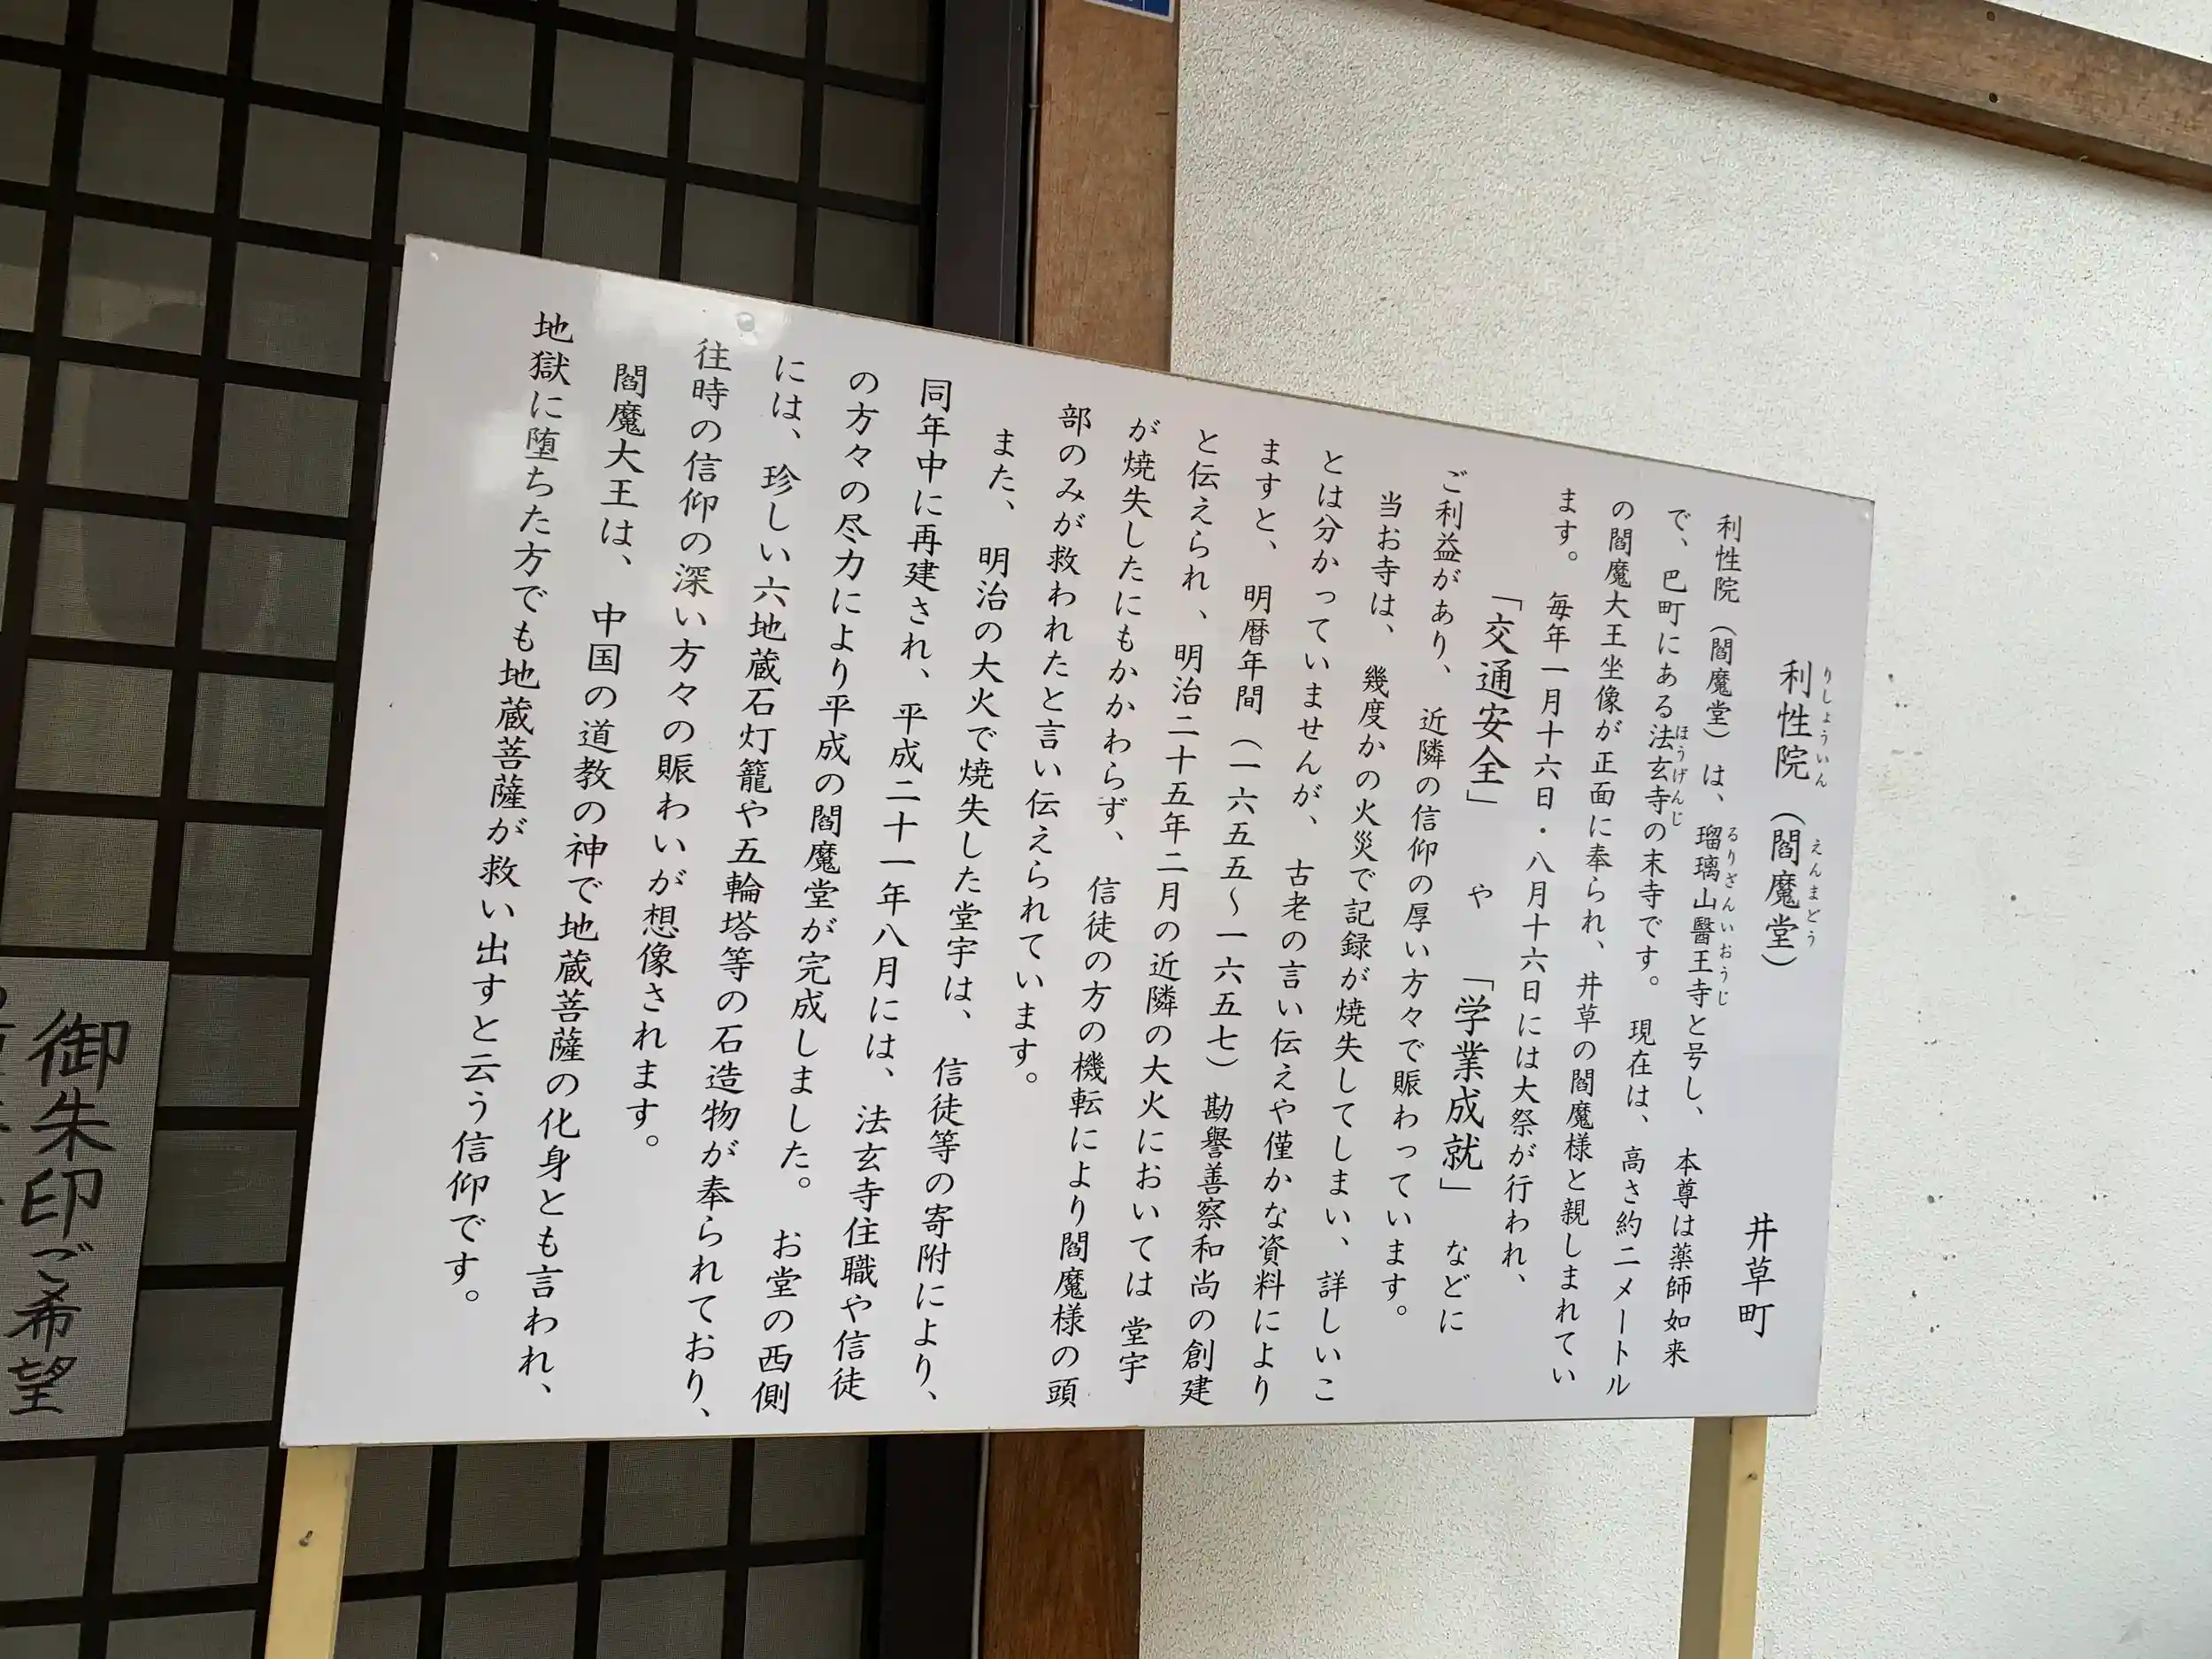 利性院（閻魔堂）
りしょういん
えんまどう
井草町
利性院（閻魔堂）は、瑠璃山醫王寺と号し、本尊は薬師如来
るりざんいおうじ
で、巴町にある法玄寺の末寺です。現在は、高さ約二メートル
ほうげんじ
の閻魔大王坐像が正面に奉られ、井草の閻魔様と親しまれてい
ます。毎年一月十六日・八月十六日には大祭が行われ、
「交通安全」や「学業成就」などに
ご利益があり、近隣の信仰の厚い方々で賑わっています。
当お寺は、幾度かの火災で記録が焼失してしまい、詳しいこ
とは分かっていませんが、古老の言い伝えや僅かな資料により
ますと、明暦年間（一六五五〜一六五七）勘譽善察和尚の創建
と伝えられ、明治二十五年二月の近隣の大火においては堂宇
が焼失したにもかかわらず、信徒の方の機転により閻魔様の頭
部のみが救われたと言い伝えられています。
また、明治の大火で焼失した堂宇は、信徒等の寄附により、
同年中に再建され、平成二十一年八月には、法玄寺住職や信徒
の方々の尽力により平成の閻魔堂が完成しました。お堂の西側
には、珍しい六地蔵石灯籠や五輪塔等の石造物が奉られており、
往時の信仰の深い方々の賑わいが想像されます。
閻魔大王は、中国の道教の神で地蔵菩薩の化身とも言われ、
地獄に堕ちた方でも地蔵菩薩が救い出すと云う信仰です。
御朱印ご希望